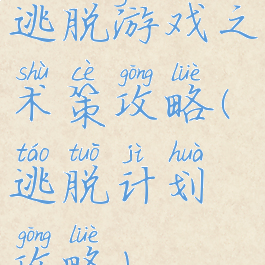 逃脱游戏之
shù cè gōng lüè
术策攻略(
táo tuō jì huà
逃脱计划
gōng lüè
攻略)